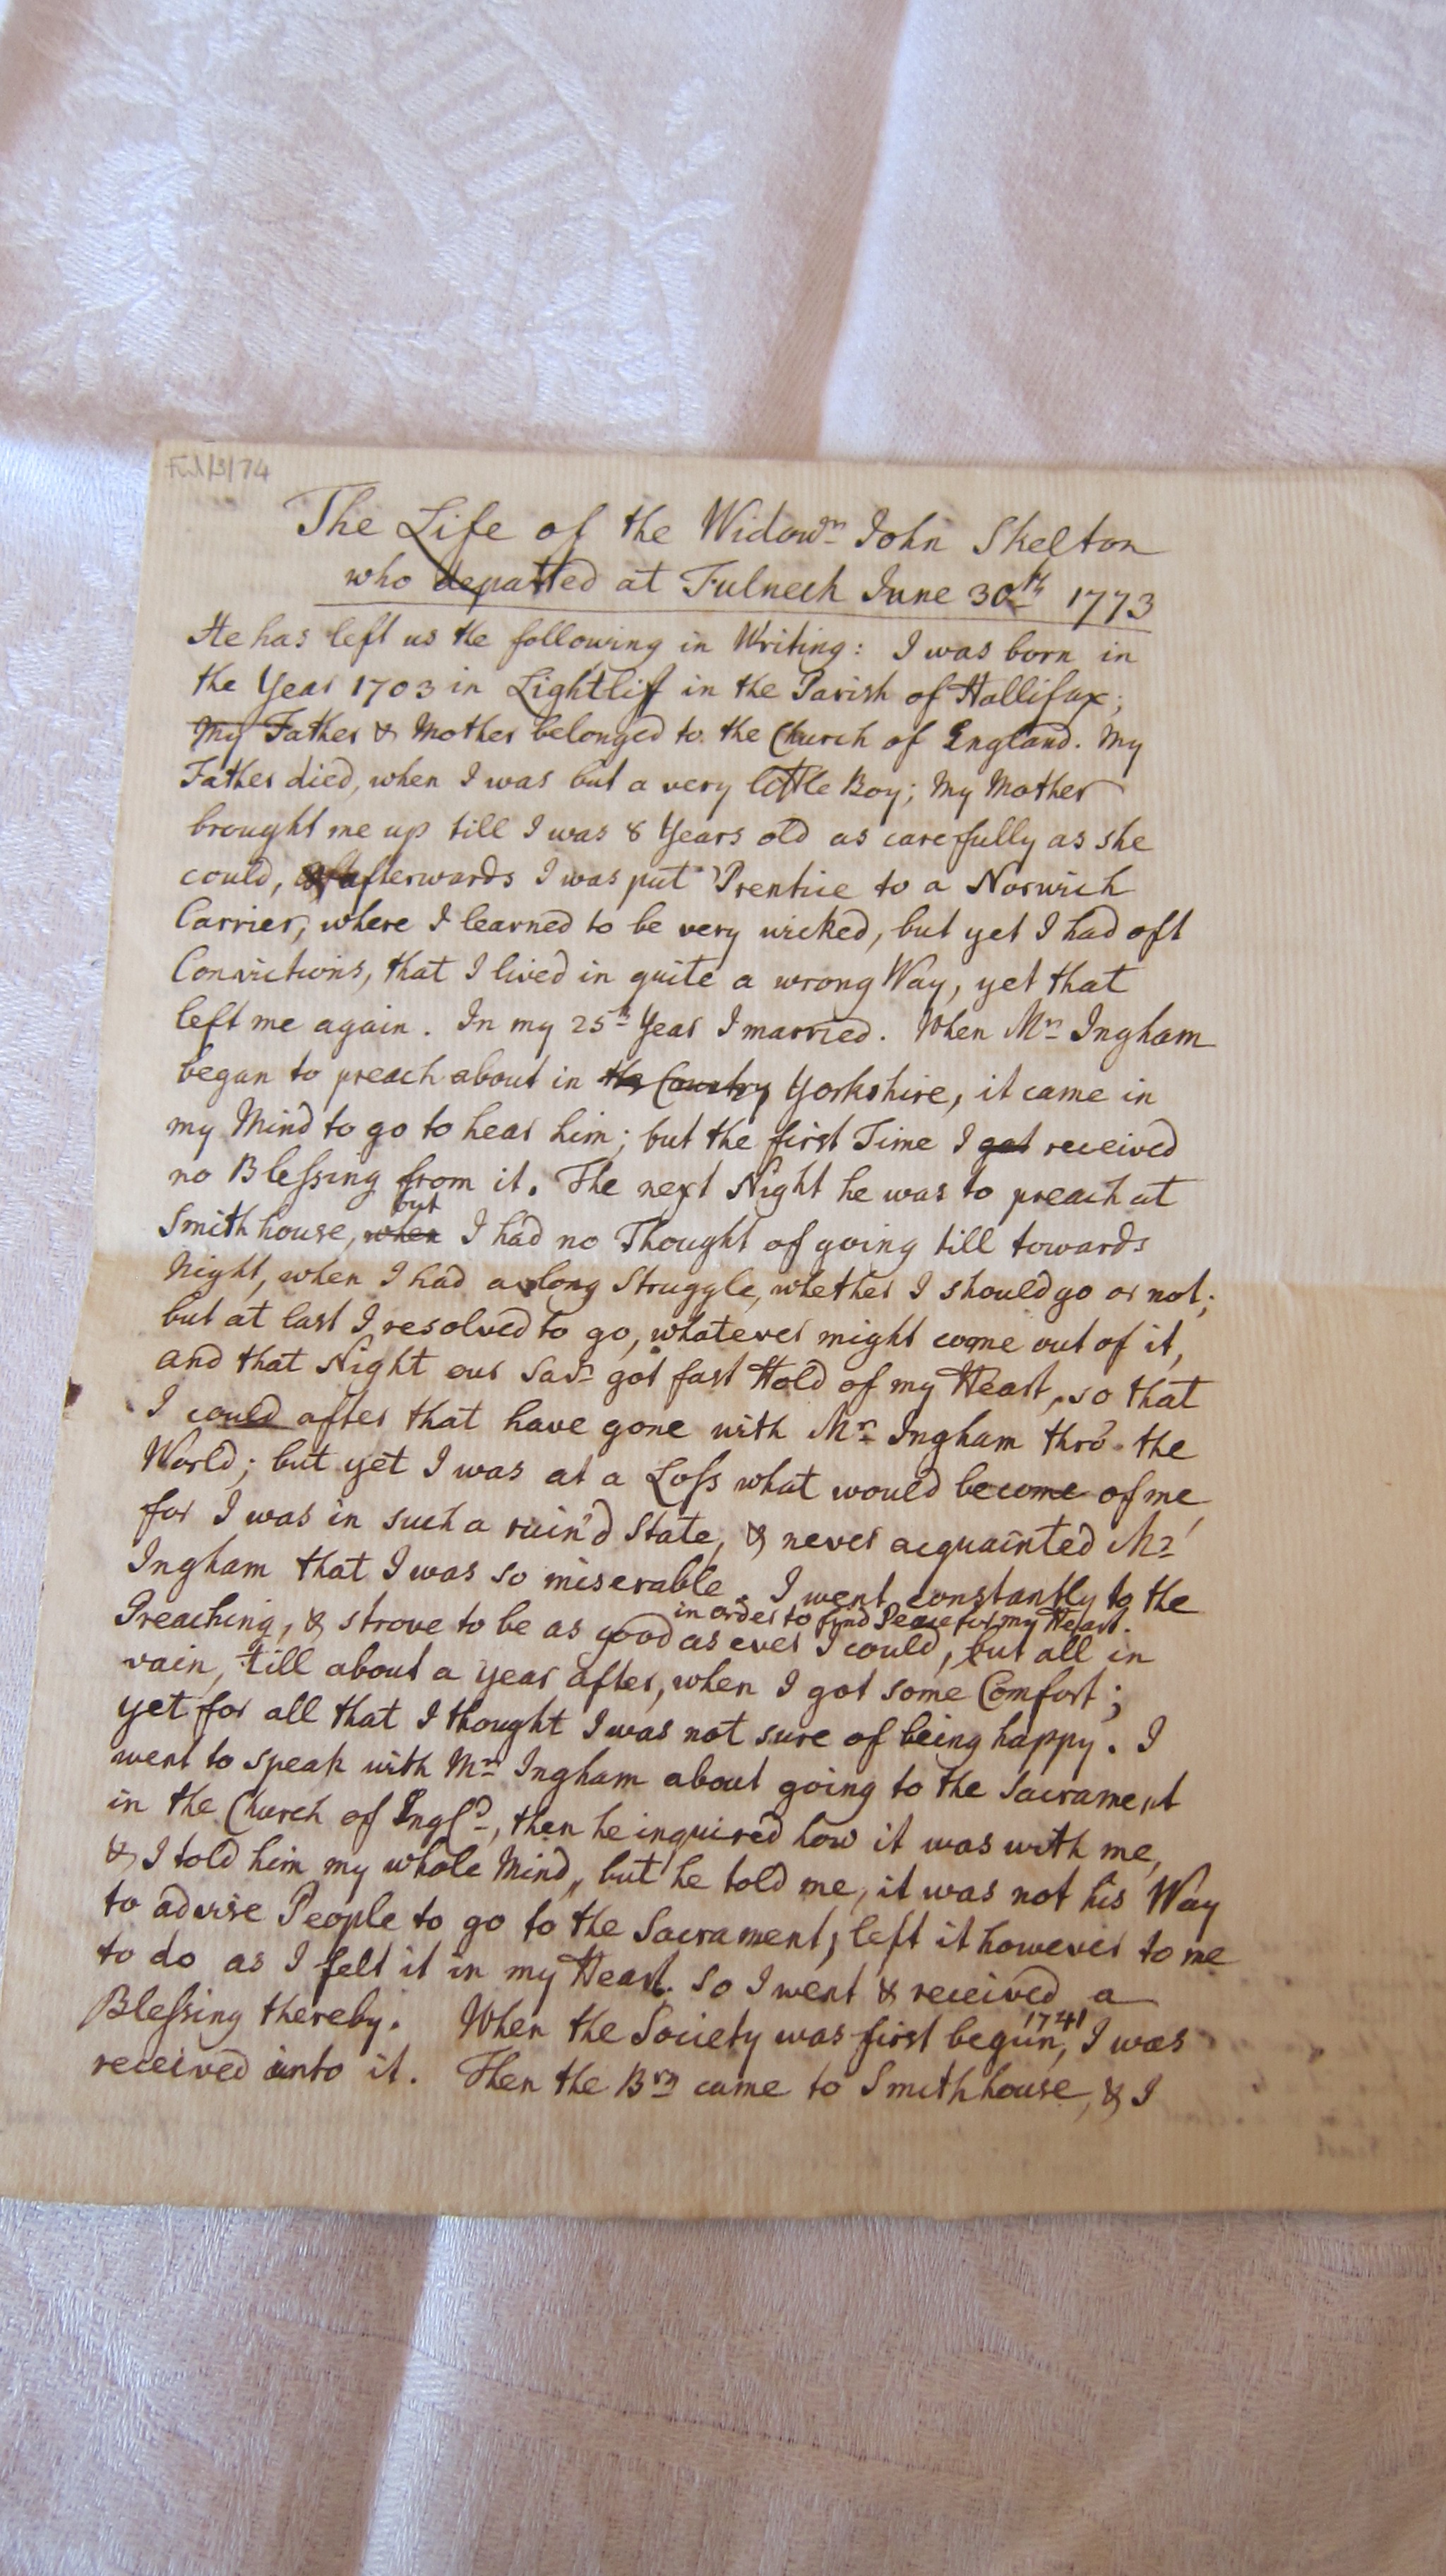 The Life of the Widowr John Skelton
who departed at Fulneck June 30th 1773
He has left us the following in Writing: I was born in
the Year 1703 in Lightliff in the Parish of Hallifax;
My Father & Mother belonged to the Church of England. My
Father died, when I was but a very little Boy; My Mother
brought me up till I was 8 Years old as carefully as she
could, afterwards I was put 'Prentice to a Norwich
Carrier, where I learned to be very wicked, but yet I had oft
Convictions, that I lived in quite a wrong Way, yet that
left me again. In my 25th Year I married. When Mr Ingham
began to preach about in the Country Yorkshire, it came in
my Mind to go to hear him; but the first Time I got received
no Blessing from it. The next Night he was to preach at
but
Smith house, when I had no Thought of going till towards
Night, when I had a long Struggle, whether I should go or not;
but at last I resolved to go, whatever might come out of it,
and that Night our Savr got fast Hold of my Heart, so that
I could after that have gone with Mr Ingham thro' the
World; but yet I was at a Loss what would become of me,
for I was in such a ruin'd State, & never acquainted Mr
Ingham that I was so miserable. I went constantly to the
in order to find Peace for my Heart.
Preaching, & strove to be as good as ever I could, but all in
vain, till about a year after, when I got some Comfort;
yet for all that I thought I was not sure of being happy. I
went to speak with Mr Ingham about going to the Sacrament
in the Church of Engld, then he inquired how it was with me,
& I told him my whole Mind, but he told me, it was not his Way
to advise People to go to the Sacrament, left it however to me
to do as I felt it in my Heart. So I went & received a
Blessing thereby. When the Society was first begun, 1741 I was
received into it. Then the Brn came to Smithhouse, & I